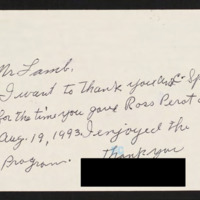 Mr Lamb.
I want to thank you and C-Sp
for the time you gave Ross Perot
Aug. 19, 1993. I enjoyed the
Program.
Thank you